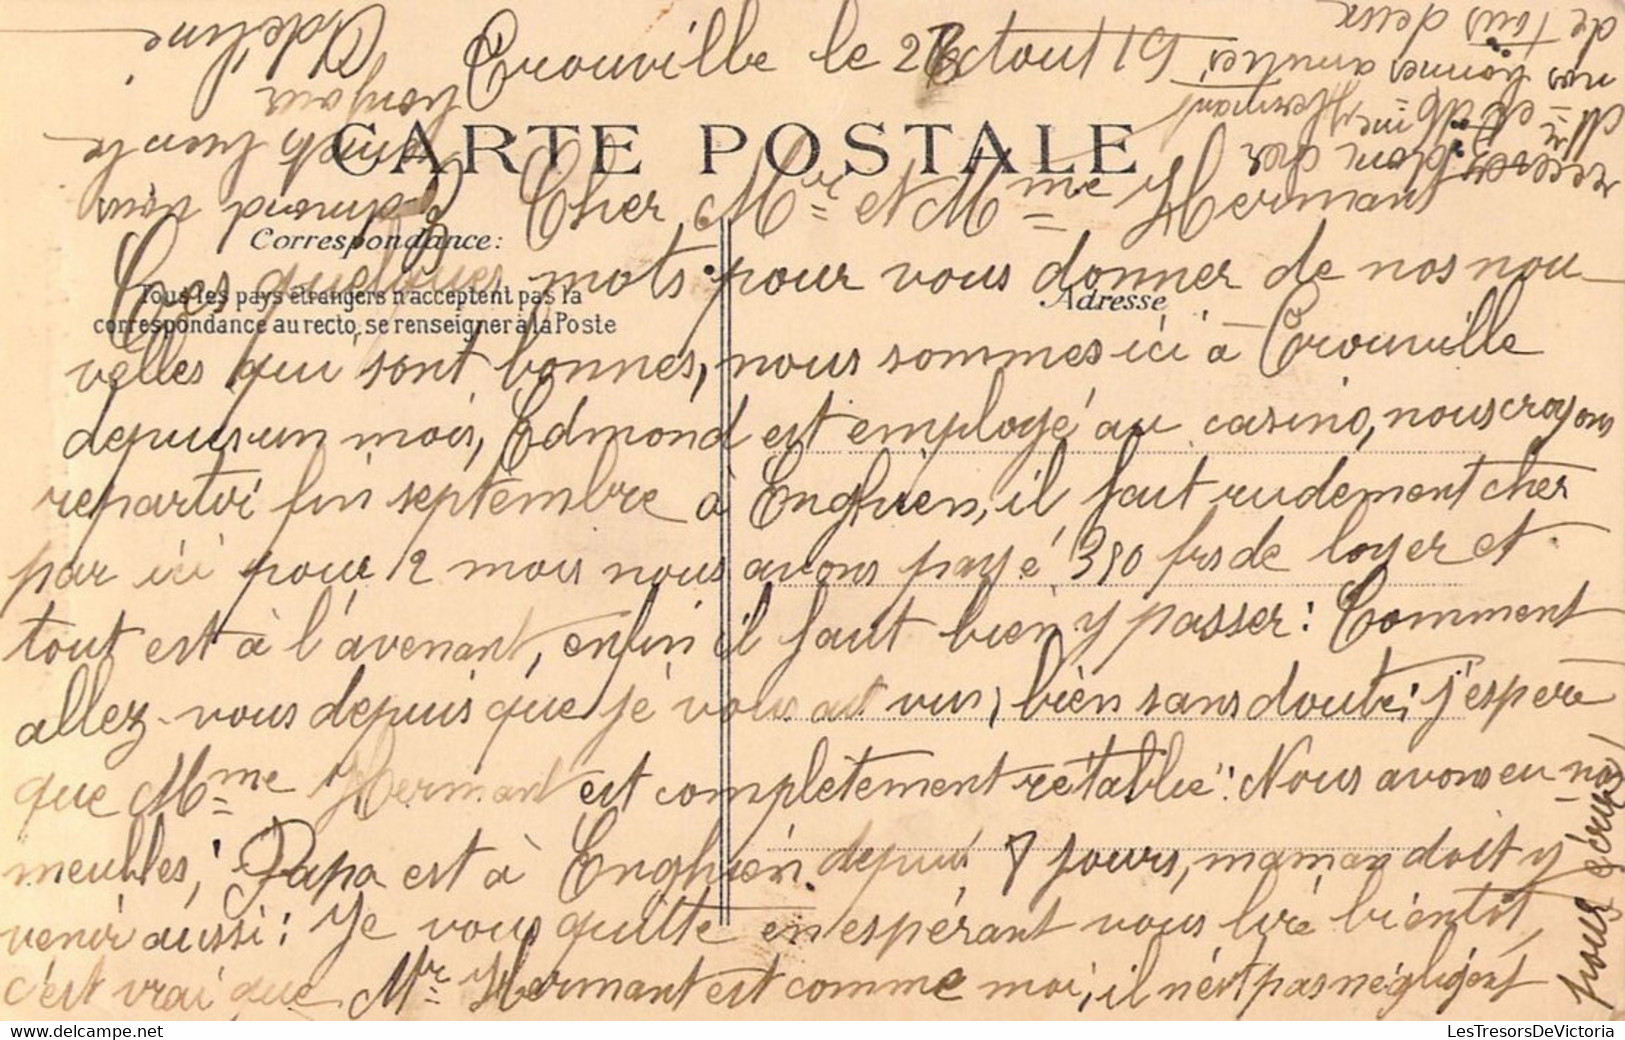 Trouville le 26 Aout 19
CARTE POSTALE
Cher Mr et Mme Hermant
Correspondance:
Ces quelques mots pour vous donner de nos nou-
Tous les pays étrangers n'acceptent pas la
correspondance au recto, se renseigner à la Poste
Adresse
velles qui sont bonnes, nous sommes ici à Trouville
depuis un mois, Edmond est employé au casino, nous croyons
repartir fin septembre à Enghien, il faut rudement cher
par ici pour 2 mois nous avons payé 350 frs de loyer et
tout est à l'avenant, enfin il faut bien y passer: Comment
allez-vous depuis que je vous ai vus, bien sans doute; j'espère
que Mme Hermant est complètement rétablie: Nous avons eu nos
meubles; Papa est à Enghien depuis 8 jours, maman doit y
venir aussi: Je vous quitte en espérant vous lire bientôt,
c'est vrai que Mr Hermant est comme moi, il n'est pas négligent
pour écrire,
recevez chers
Mr et Mme Hermant
nos bonnes amitiés
de tous deux
Edmond vous
souhaite
bonjour
Adeline
LesTresorsDeVictoria